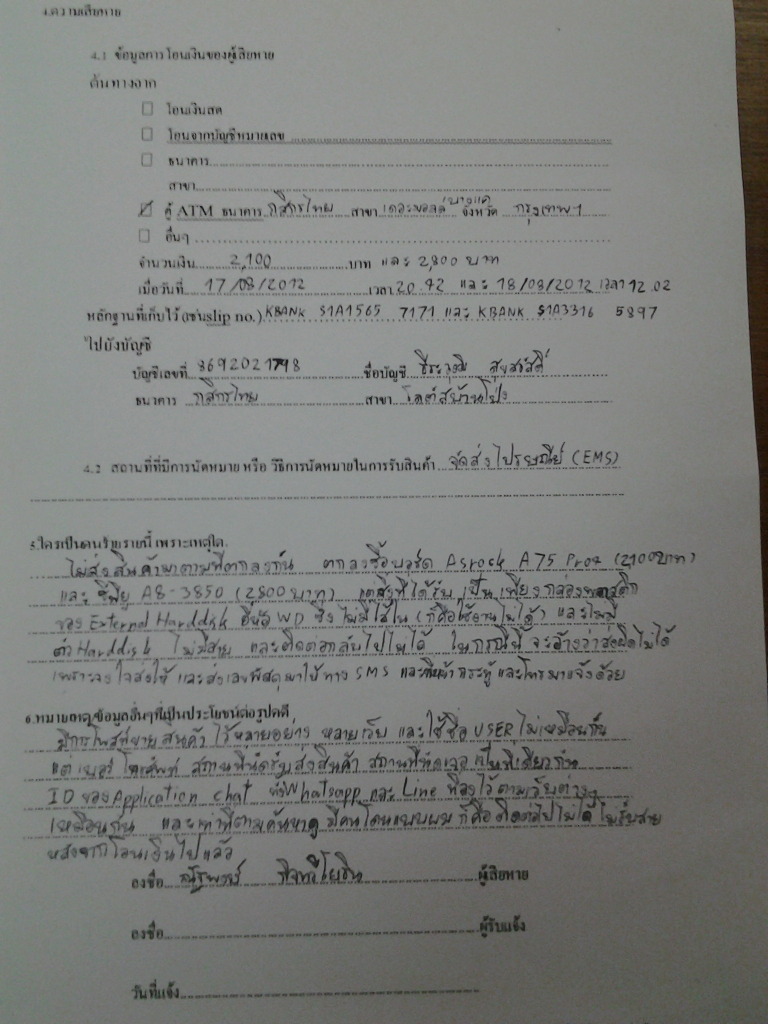 4.ความเสียหาย
4.1 ข้อมูลการโอนเงินของผู้เสียหาย
ต้นทางจาก
โอนเงินสด
โอนจากบัญชีหมายเลข
ธนาคาร
สาขา
ตู้ ATM ธนาคาร กสิกรไทย สาขา เดอะมอลล์ บางแค จังหวัด กรุงเทพฯ
อื่นๆ
จำนวนเงิน 2,100 บาท และ 2,800 บาท
เมื่อวันที่ 17/08/2012 เวลา 20.42 และ 18/08/2012 เวลา 12.02
หลักฐานที่เก็บไว้ (เช่นslip no.) KBANK S1A1565 7171 และ KBANK S1A3316 5897
ไปยังบัญชี
บัญชีเลขที่ 8692021798 ชื่อบัญชี
ธนาคาร กสิกรไทย สาขา โลตัสบ้านโป่ง
4.2 สถานที่ที่มีการนัดหมาย หรือ วิธีการนัดหมายในการรับสินค้า จัดส่งไปรษณีย์ (EMS)
5.ใครเป็นคนร้ายรายนี้ เพราะเหตุใด
ไม่ส่งสินค้ามาตามที่ตกลงกัน ตกลงซื้อบอร์ด Asrock A75 Pro4 (2100บาท)
และ ซีพียู A8-3850 (2800บาท) แต่สิ่งที่ได้รับ เป็นเพียงกล่องพลาสติก
ของ External Harddisk ยี่ห้อ WD ซึ่งไม่มีไส้ใน (ก็คือใช้งานไม่ได้) และไม่มี
ตัว Harddisk ไม่มีสาย และติดต่อกลับไปไม่ได้ ในกรณีนี้ จะอ้างว่าส่งผิดไม่ได้
เพราะจงใจส่งให้ และส่งเลขพัสดุมาให้ทาง SMS และที่หน้ากระทู้ และโทรมาแจ้งด้วย
6.หมายเหตุ/ข้อมูลอื่นๆที่เป็นประโยชน์ต่อรูปคดี
มีการโพสท์ขายสินค้าไว้หลายอย่าง หลายเว็บ และใช้ชื่อ USER ไม่เหมือนกัน
แต่เบอร์โทรศัพท์ สถานที่นัดรับส่งสินค้า ที่เดียวกัน
ID ของ Application chat ทั้ง Whatsapp และ Line ที่ลงไว้ตามเว็บต่างๆ
เหมือนกัน และเท่าที่ตามค้นหาดู มีคนโดนแบบผม ก็คือ ติดต่อไปไม่ได้ ไม่รับสาย
หลังจากโอนเงินไปแล้ว
ลงชื่อ ผู้เสียหาย
ลงชื่อ ผู้รับแจ้ง
วันที่แจ้ง